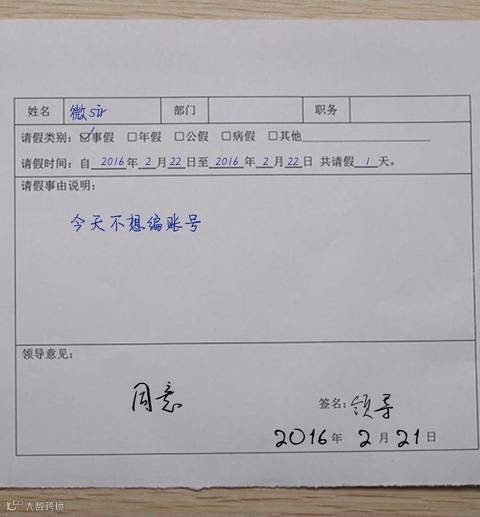 姓名 微sir 部门 职务
请假类别：☑事假 □年假 □公假 □病假 □其他
请假时间：自 2016 年 2 月 22 日至 2016 年 2 月 22 日 共请假 1 天。
请假事由说明：
今天不想编账号
领导意见：
同意
签名：领导
2016 年 2 月 21 日
大数跨境